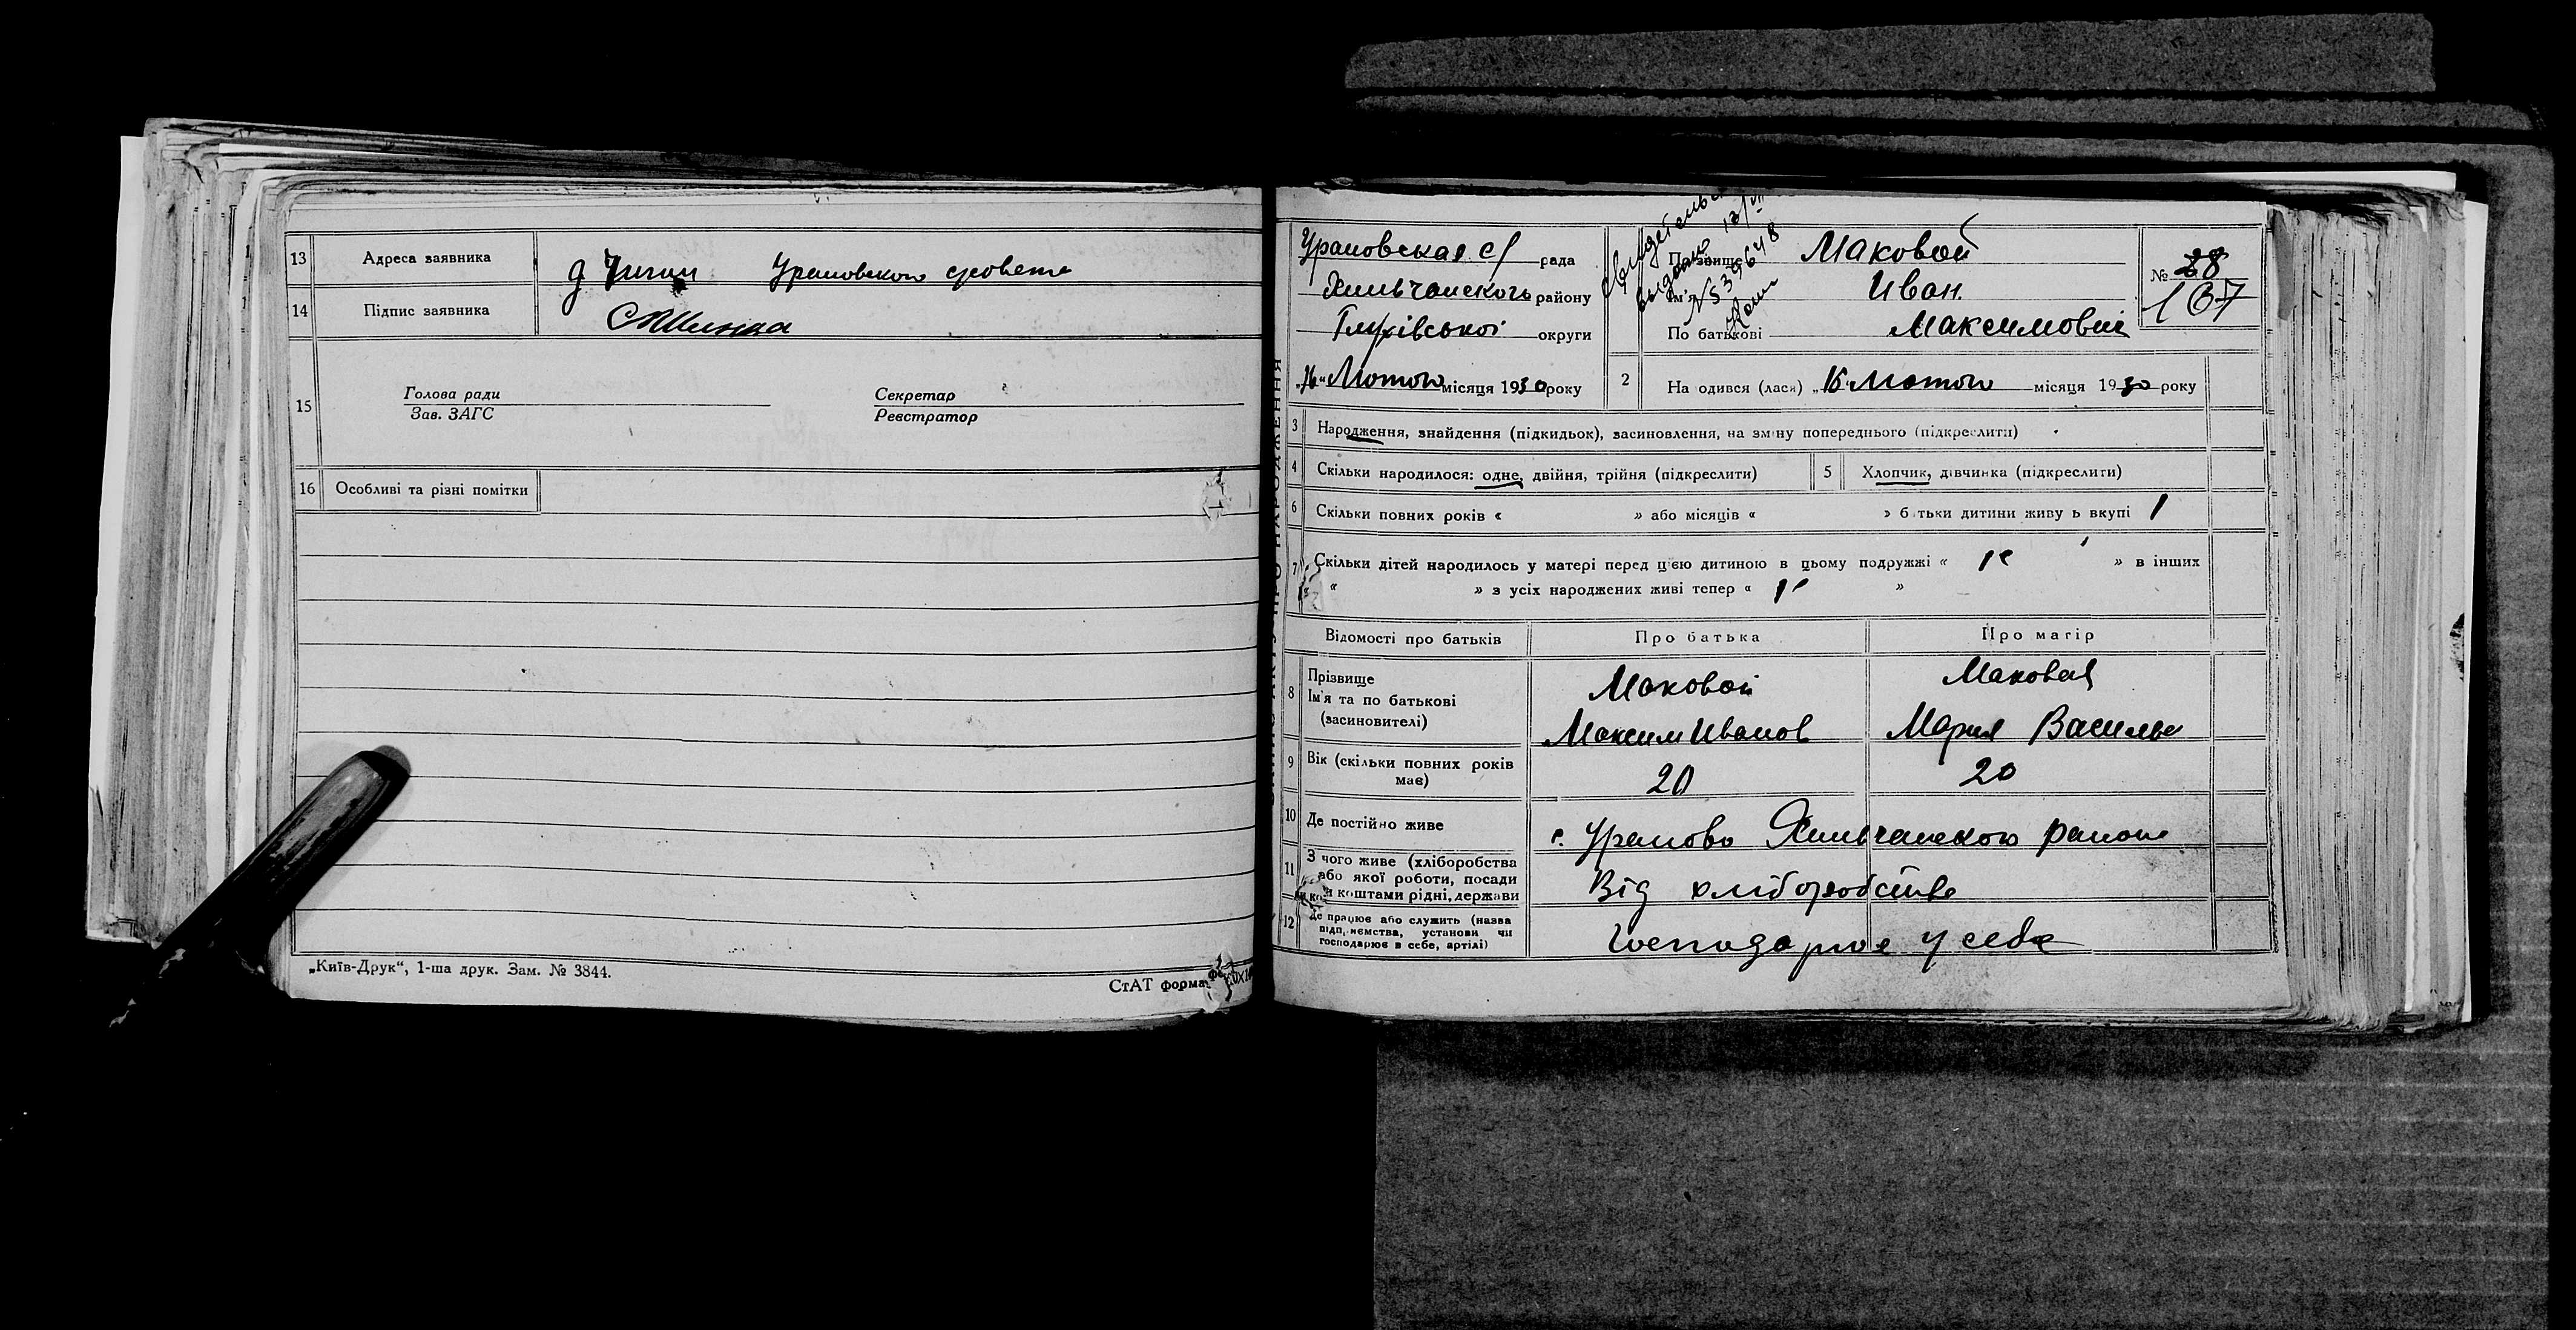 13 Адреса заявника д Чигин Урамовского с/совета
14 Підпис заявника
15 Голова ради Секретар
Зав. ЗАГС Реєстратор
16 Особливі та різні помітки
„Київ-Друк“, 1-ша друк. Зам. № 3844.
СтАТ форма
Урамовская с/ рада
района району
Глухівської округи
„16“ Лютого місяця 1930 року
выдано
№ 539648
Прізвище Маковой
Ім'я Иван.
По батькові Максимовий
№ 28
167
2 На одився (лася) „16 Лютого місяця 1930 року
3 Народження, знайдення (підкидьок), засиновлення, на зміну попереднього (підкреслити)
4 Скільки народилося: одне, двійня, трійня (підкреслити) 5 Хлопчик, дівчинка (підкреслити)
6 Скільки повних років « » або місяців « » батьки дитини живу ь вкупі 1
7 Скільки дітей народилось у матері перед цією дитиною в цьому подружжі « » в інших
« » з усіх народжених живі тепер « »
Відомості про батьків Про батька Про матір
8 Прізвище
Ім'я та по батькові
(засиновителі)
Маковой
Максим Иванов
Маковая
Мария Василье
9 Вік (скільки повних років
має)
20 20
10 Де постійно живе с. Урамово
11 З чого живе (хліборобства
або якої роботи, посади
коштами рідні, держави
Від хліборобства
12 Де працює або служить (назва
підприємства, установи чи
господарює в себе, артілі)
Господарює у себе